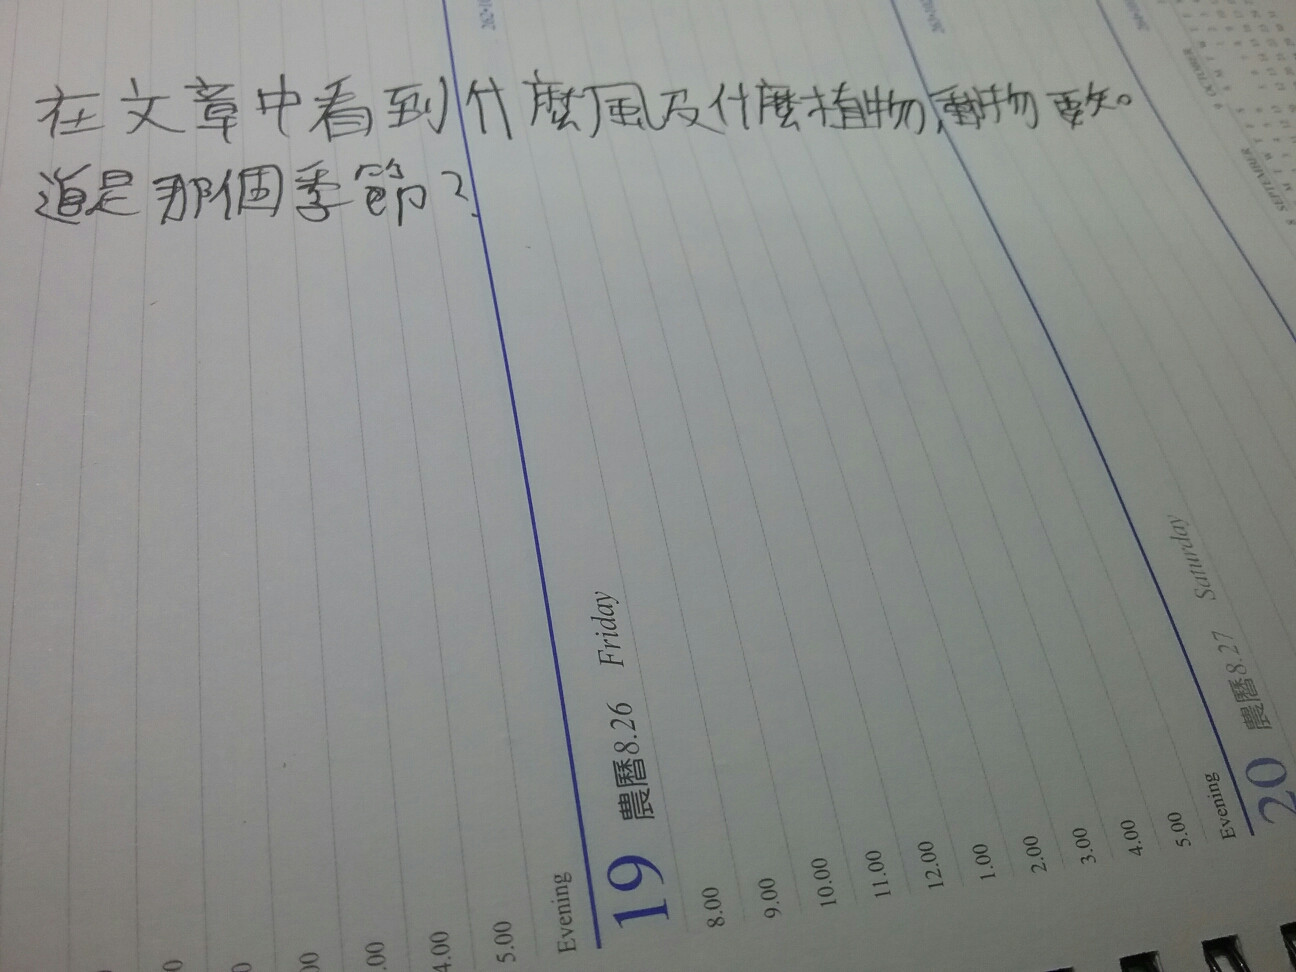 在文章中看到什麼風及什麼植物,動物 要知。
道是那個季節?
19 農曆8.26 Friday
8.00
9.00
10.00
11.00
12.00
1.00
2.00
3.00
4.00
5.00
Evening
20 農曆8.27 Saturday
4.00
5.00
Evening
8 SEPTEMBER
9 OCTOBER